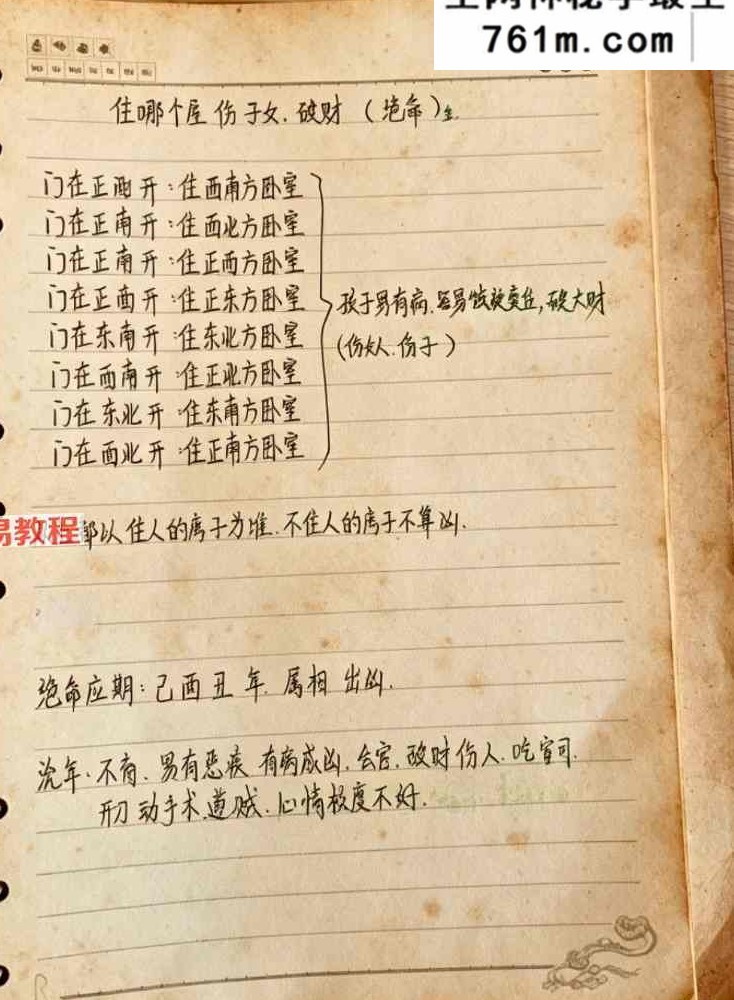 761m.com
住哪个屋伤子女.破财（绝命）金.
门在正西开：住西南方卧室
门在正南开：住西北方卧室
门在正南开：住正西方卧室
门在正西开：住正东方卧室
门在东南开：住东北方卧室
门在西南开：住正北方卧室
门在东北开：住东南方卧室
门在西北开：住正南方卧室
孩子易有病.容易 破大财
(伤女人.伤子）
易教程
都以住人的房子为准.不住人的房子不算凶.
绝命应期：己酉丑年.属相出凶.
流年.不育.易有恶疾 有病成凶.会官.破财伤人.吃官司.
动手术.道贼.心情极度不好.